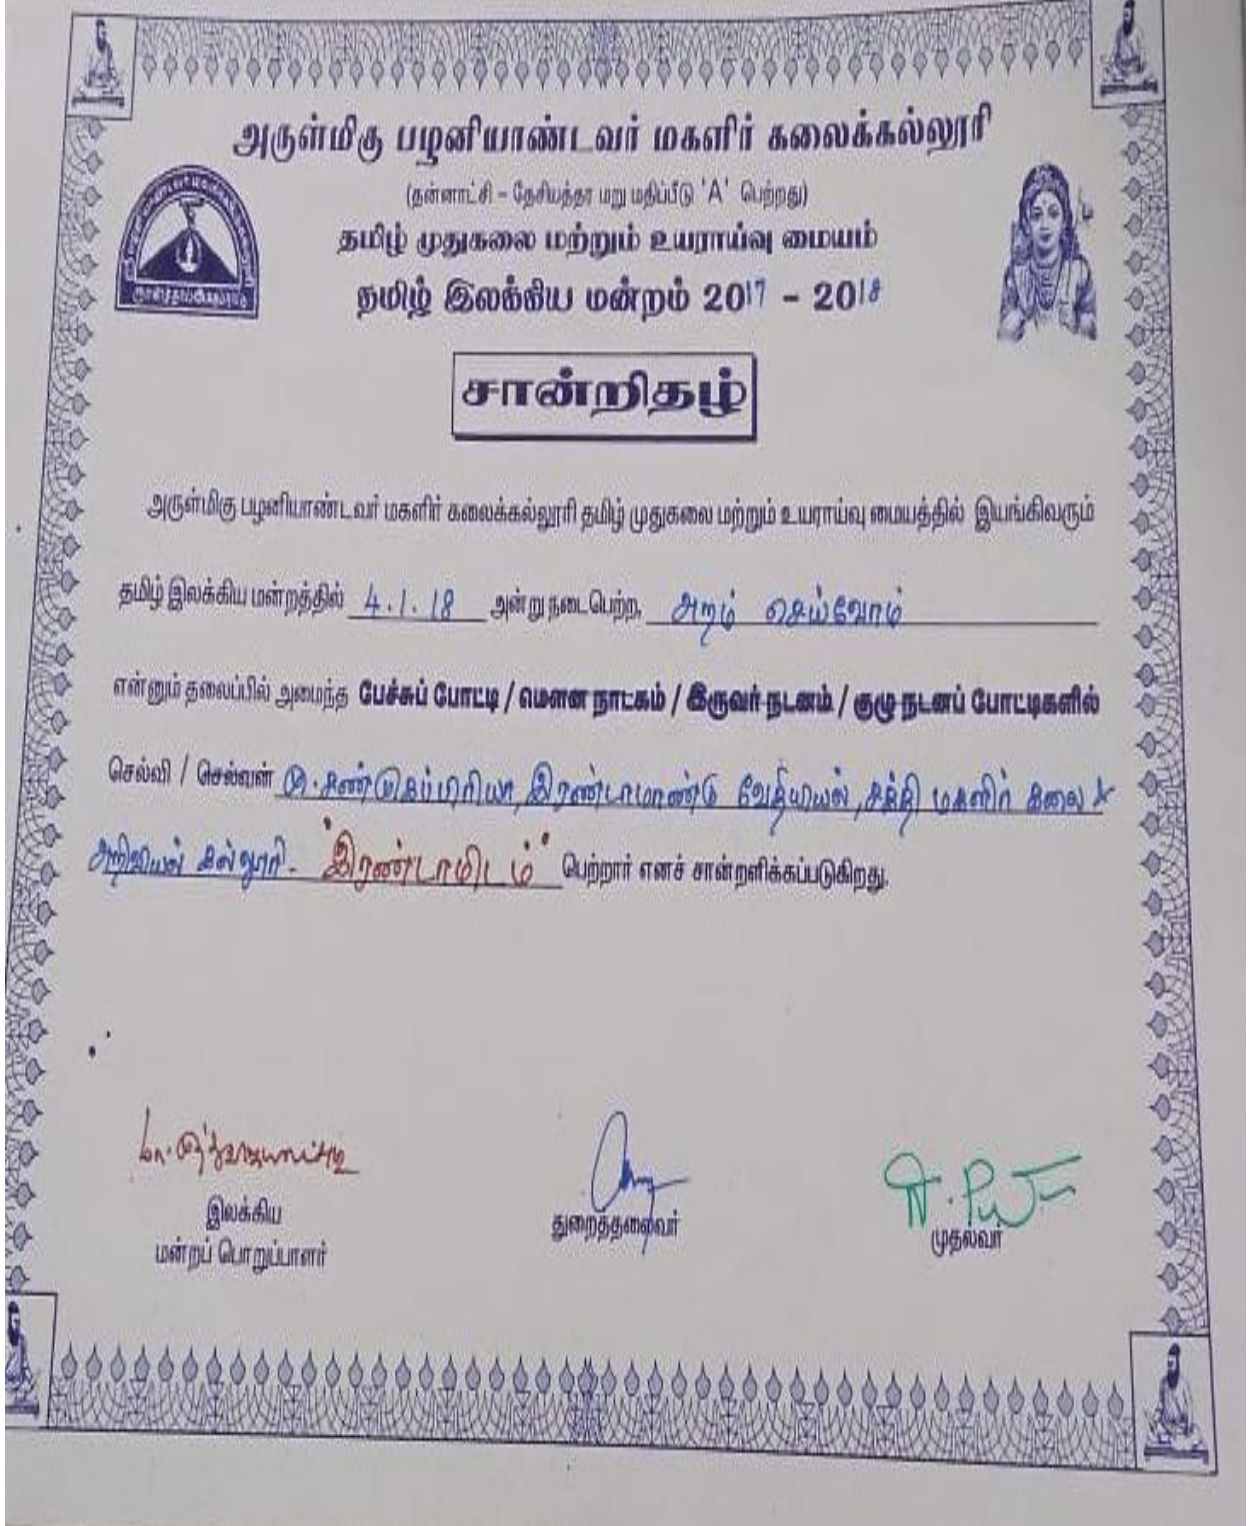 அருள்மிகு பழனியாண்டவர் மகளிர் கலைக்கல்லூரி
(தன்னாட்சி - தேசியத்தர மறு மதிப்பீடு 'A' பெற்றது)
தமிழ் முதுகலை மற்றும் உயராய்வு மையம்
தமிழ் இலக்கிய மன்றம் 2017 - 2018
சான்றிதழ்
அருள்மிகு பழனியாண்டவர் மகளிர் கலைக்கல்லூரி தமிழ் முதுகலை மற்றும் உயராய்வு மையத்தில் இயங்கிவரும்
தமிழ் இலக்கிய மன்றத்தில் 4.1.18 அன்று நடைபெற்ற, அறம் செய்வோம்
என்னும் தலைப்பில் அமைந்த பேச்சுப் போட்டி / மௌன நாடகம் / இருவர் நடனம் / குழு நடனப் போட்டிகளில்
செல்வி / செல்வன் சண்முகப்பிரியா, இரண்டாமாண்டு வேதியியல், சக்தி மகளிர் கலை &
அறிவியல் கல்லூரி - "இரண்டாமிடம்" பெற்றார் எனச் சான்றளிக்கப்படுகிறது.
இலக்கிய
மன்றப் பொறுப்பாளர்
துறைத்தலைவர்
முதல்வர்